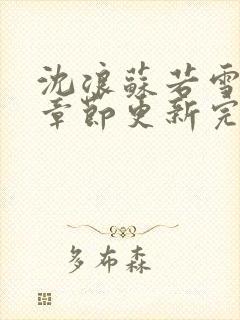 沈浪蘇若雪
章節更新完
多布森